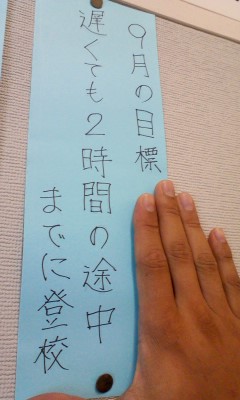 9月の目標
遅くても2時間の途中
までに登校